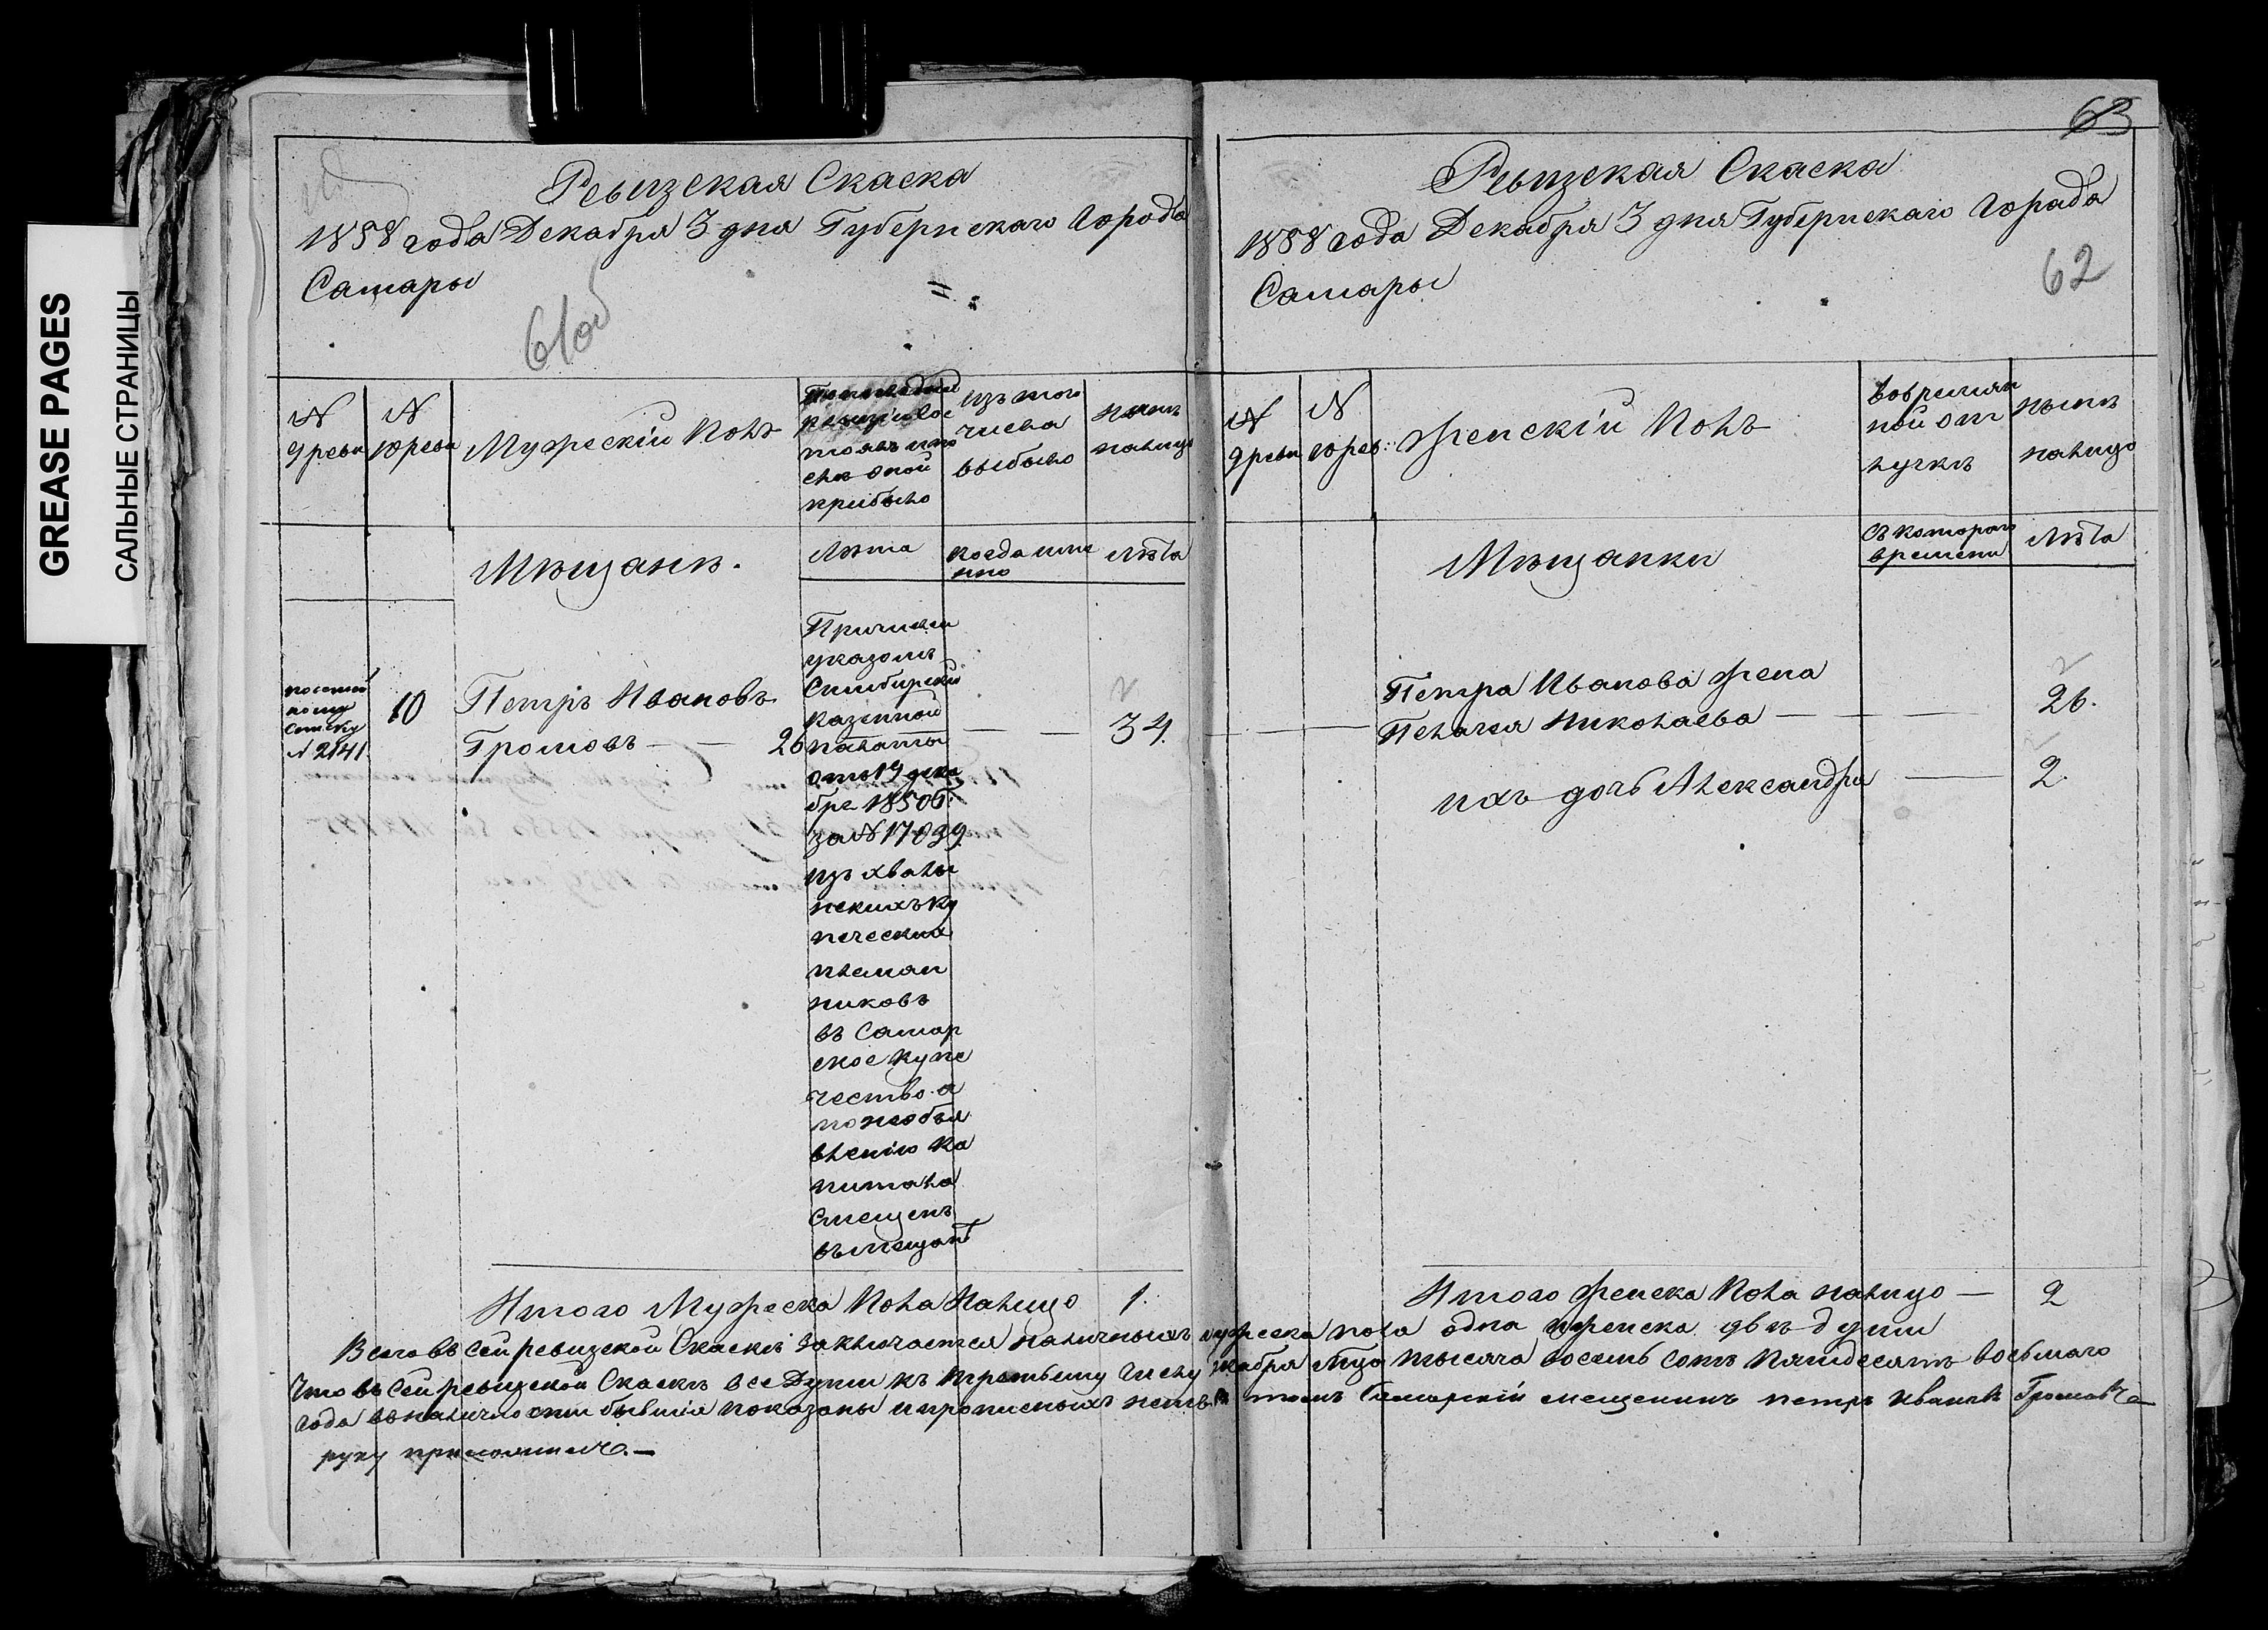 GREASE PAGES
САЛЬНЫЕ СТРАНИЦЫ
Ревизская Скаска
1858 года Декабря 3 дня Губернскаго Города
Самары
61об
№
9 реви
№
10 реви
Мужескій Полъ
ревизіи сос
тояло и по
слѣ оной
прибыло
Изъ того
числа
выбыло
Нынѣ
налицо
Мѣщанѣ.
Лѣта
когда име
нно
Лѣта
N 2141.
10
Петръ Ивановъ
Громовъ — — 26
Причислен
указомъ
Симбирской
Казенной
палаты
отъ 19 дека
бря 1850 г.
за № 17039
изъ хвалы
нскихъ ку
печескихъ
племян
никовъ
въ Самар
ское купе
чество а
по необъя
влению ка
питала
Смещенъ
въ мещан
34.
Итого Мужеска Пола Налицо 1.
63
Ревизская Скаска
1858 года Декабря 3 дня Губернскаго Города
Самары
62
№
9 реви
№
10 рев:
Женскій Полъ
Вовремян
ной от
лучкѣ
Нынѣ
налицо
Мѣщанки
Съ котораго
времени
Лѣта
Петра Иванова жена
Пелагея Николаева — — 26.
ихъ дочь Александра — 2.
Итого Женска Пола налицо — 2
Всего въ сей ревизской Скаскѣ заключается наличныхъ мужеска пола одна и женска двѣ души
Что въ сей ревизской Скаскѣ все Души къ третьему числу декабря Мца тысяча восемь сотъ пятдесятъ восьмаго
года въ наличности бывшія показаны и прописныхъ нетъ въ томъ Самарскій мещенинъ петръ Ивановъ Громовъ
руку приложилъ. —